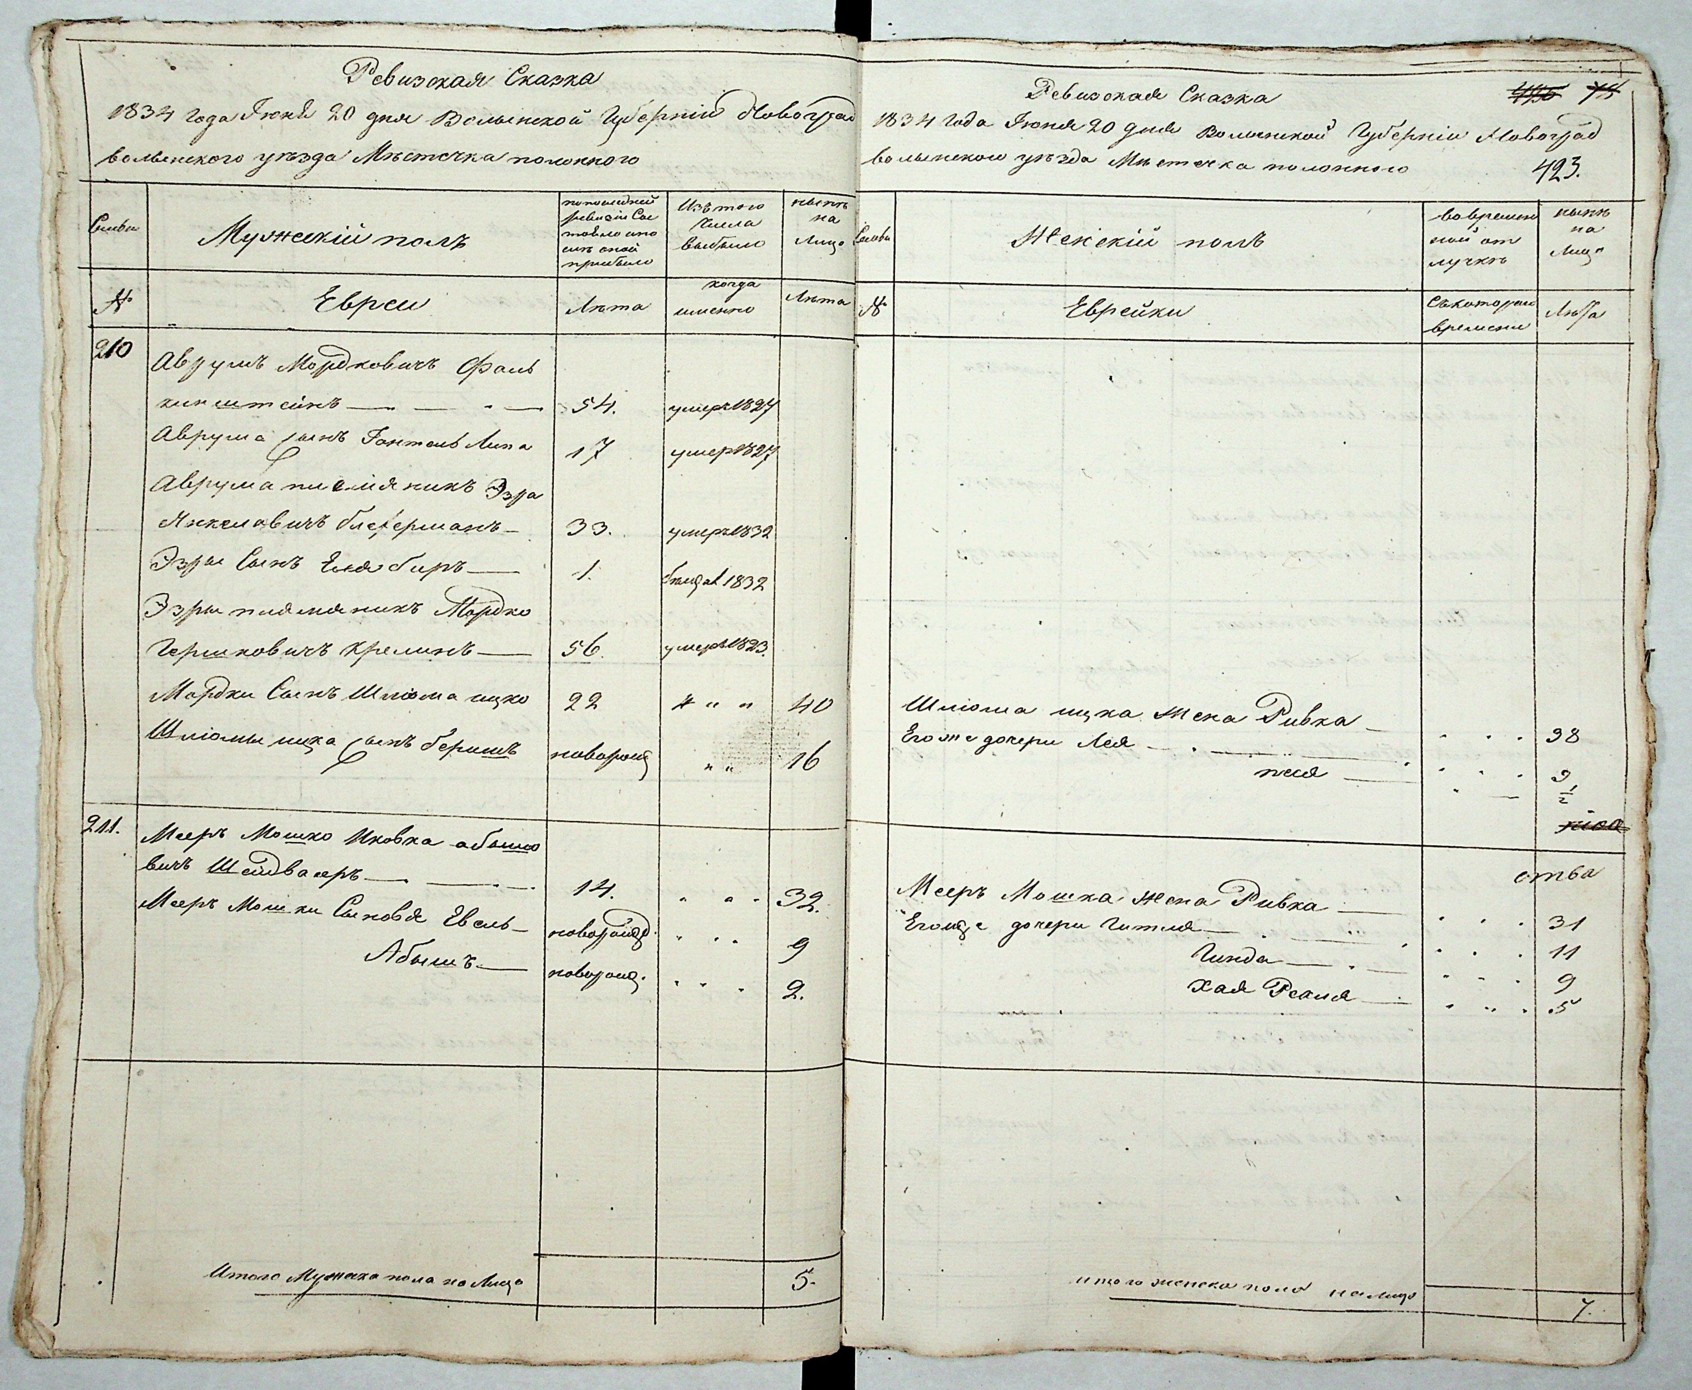 Ревизская Сказка
1834 года Июня 20 дня Волынской Губерніи Новоград
волынского уѣзда Мѣстечка полонного
Семьи
Мужескій полъ
по последней
ревизіи Сос
тояло и по
слѣ оной
прибыло
Изъ того
числа
выбыло
нынѣ
на
Лицо
№
Евреи
Лѣта
когда
именно
Лѣта
210
Аврумъ Мордковичъ Фаль
кинштейнъ 54. умеръ 1827
Аврума сынъ Липа 17 умеръ 1827
Аврума племяникъ Эзра
Янкелевичъ 33. умеръ 1832
Эзры Сынъ беръ 1. 1832
Эзры племяникъ Мордко
Гершковичъ Креминъ 56. умеръ 1823.
Мордки Сынъ Шліома ицко 22 " " " 40
Шліомы ицка сынъ бершъ новорожд " " 16
211.
Мееръ Мошко Иковка абышо
вичъ 14. " " " 32.
Мееръ Мошки Сыновья Евель новорожд. " " " 9
Абышъ новорожд. " " " 2.
Итого Мужеска пола на Лицо 5.
Ревизская Сказка
1834 года Июня 20 дня Волынской Губерніи Новоград
волынского уѣзда Мѣстечка полонного
423.
Семьи
Женскій полъ
во времен
ной от
лучкѣ
нынѣ
на
Лицо
№
Еврейки
Съ которого
времени
Лѣта
Шліома ицка жена Ривка 38
Его же дочери Лея 9
песя 1/2
Мееръ Мошка жена Ривка 31
Его же дочери Гитля 11
Гинда 9
Хая Рейзя 5
итого женска пола налицо 7.